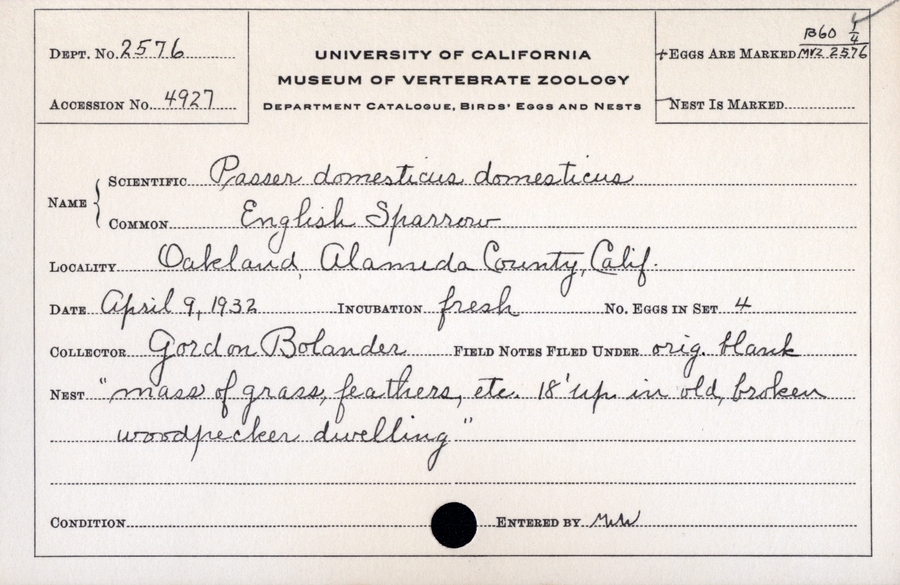 Dept. No. 2576
Accession No. 4927
UNIVERSITY OF CALIFORNIA
MUSEUM OF VERTEBRATE ZOOLOGY
Department Catalogue, Birds' Eggs and Nests
B60 1/4
+Eggs Are Marked MVZ 2576
Nest Is Marked
Name
Scientific Passer domesticus domesticus
Common English Sparrow
Locality Oakland, Alameda County, Calif.
Date April 9, 1932 Incubation fresh No. Eggs in Set 4
Collector Gordon Bolander Field Notes Filed Under orig. blank
Nest "mass of grass, feathers, etc. 18' up in old, broken
woodpecker dwelling"
Condition Entered by